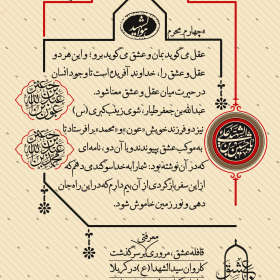 چهارم محرم
عقل می‌گوید بمان و عشق می‌گوید برو؛ و این هر دو
عقل و عشق را، خداوند آفریده است تا وجود انسان
در حیرت میان عقل و عشق معنا شود.
عبدالله بن جعفر طیار، شوی زینب کبری (س)
نیز دو فرزند خویش «عون» و «محمد» را فرستاد تا
به موکب عشق بپیوندند و با آن دو، نامه‌ای
که در آن نوشته بود: شما را به خدا سوگند می‌دهم که
از این سفر بازگردی. از آن بیم دارم که در این راه جان
دهی و نور زمین خاموش شود.
معرفی
قافله عشق، مروری بر سرگذشت
کاروان سیدالشهدا (ع) در کربلا